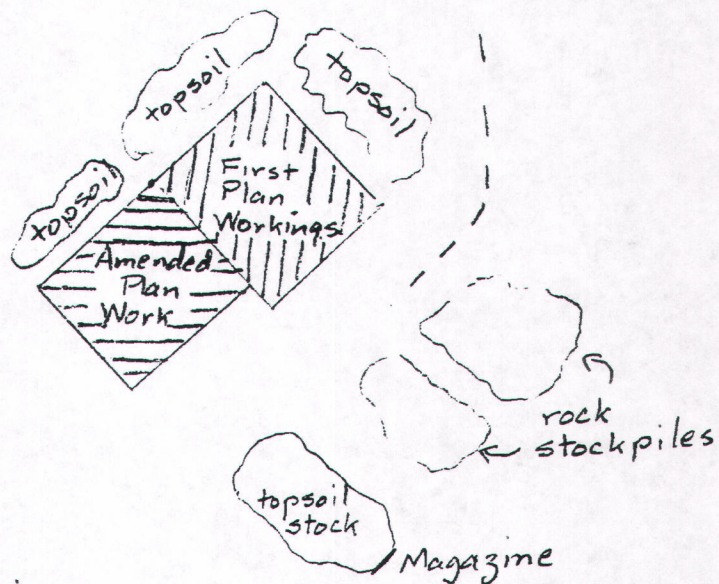 topsoil
topsoil
topsoil
First
Plan
Workings
Amended
Plan
Work
rock
stockpiles
topsoil
stock
Magazine